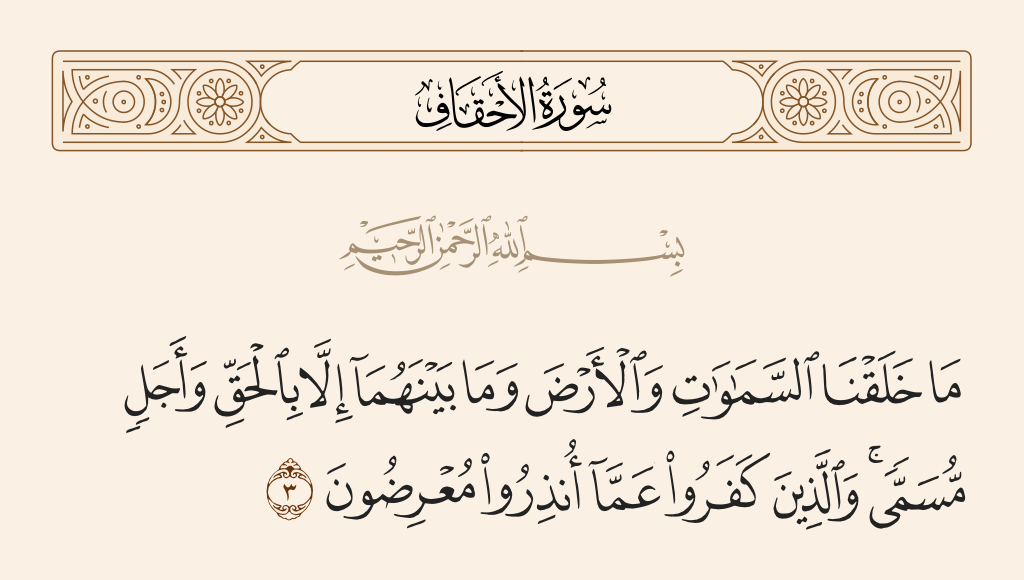 سُورَةُ الأَحْقَافِ
بِسْمِ ٱللَّهِ ٱلرَّحْمَٰنِ ٱلرَّحِيمِ
مَا خَلَقْنَا ٱلسَّمَٰوَٰتِ وَٱلْأَرْضَ وَمَا بَيْنَهُمَآ إِلَّا بِٱلْحَقِّ وَأَجَلٍ
مُّسَمًّى ۚ وَٱلَّذِينَ كَفَرُوا۟ عَمَّآ أُنذِرُوا۟ مُعْرِضُونَ ٣